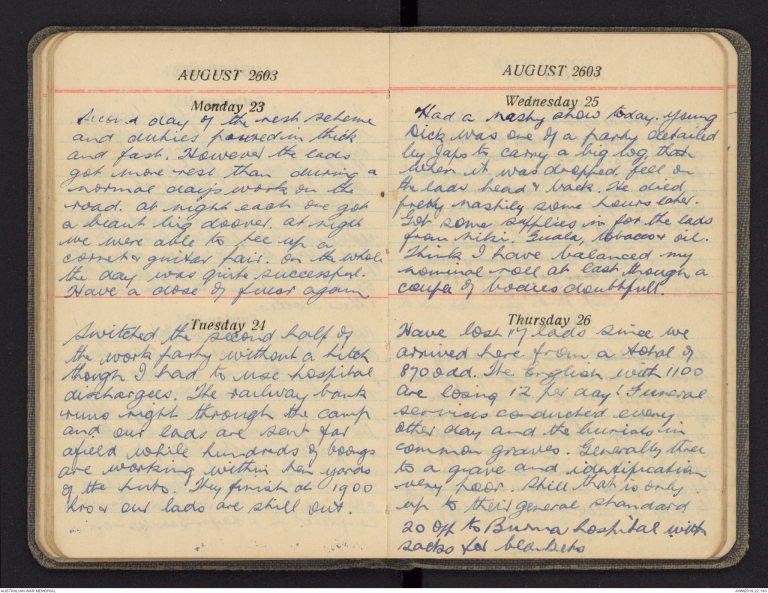 AUGUST 2603
Monday 23
Second day of the rest scheme
and duties poured in thick
and fast. However the lads
got more rest than during a
normal days work on the
road. At night each one got
a beaut big doover. At night
we were able to tee up a
cornet & guitar pair. On the whole
the day was quite successful.
Have a dose of fever again
Tuesday 24
Switched the second half of
the work party without a hitch
though I had to use hospital
dischargees. The railway bank
runs right through the camp
and our lads are sent far
afield while hundreds of boongs
are working within ten yards
of the huts. They finish at 1900
hrs & our lads are still out.
AUGUST 2603
Wednesday 25
Had a nasty show today. Young
Dick was one of a party detailed
by Japs to carry a big log, that
when it was dropped, fell on
the lads head & back. He died
pretty nastily some hours later.
Got some supplies in for the lads
from Niki. Guala, tobacco & oil.
Think I have balanced my
nominal roll at last though a
couple of bodies doubtfull.
Thursday 26
Have lost lads since we
arrived here from a total of
870 odd. The English with 1100
are losing 12 per day! Funeral
services conducted every
other day and the burials in
common graves. Generally three
to a grave and identification
very poor. Still that is only
up to their general standard
20 off to Burma hospital with
sacks for blankets
AUSTRALIAN WAR MEMORIAL
AWM2019.22.143